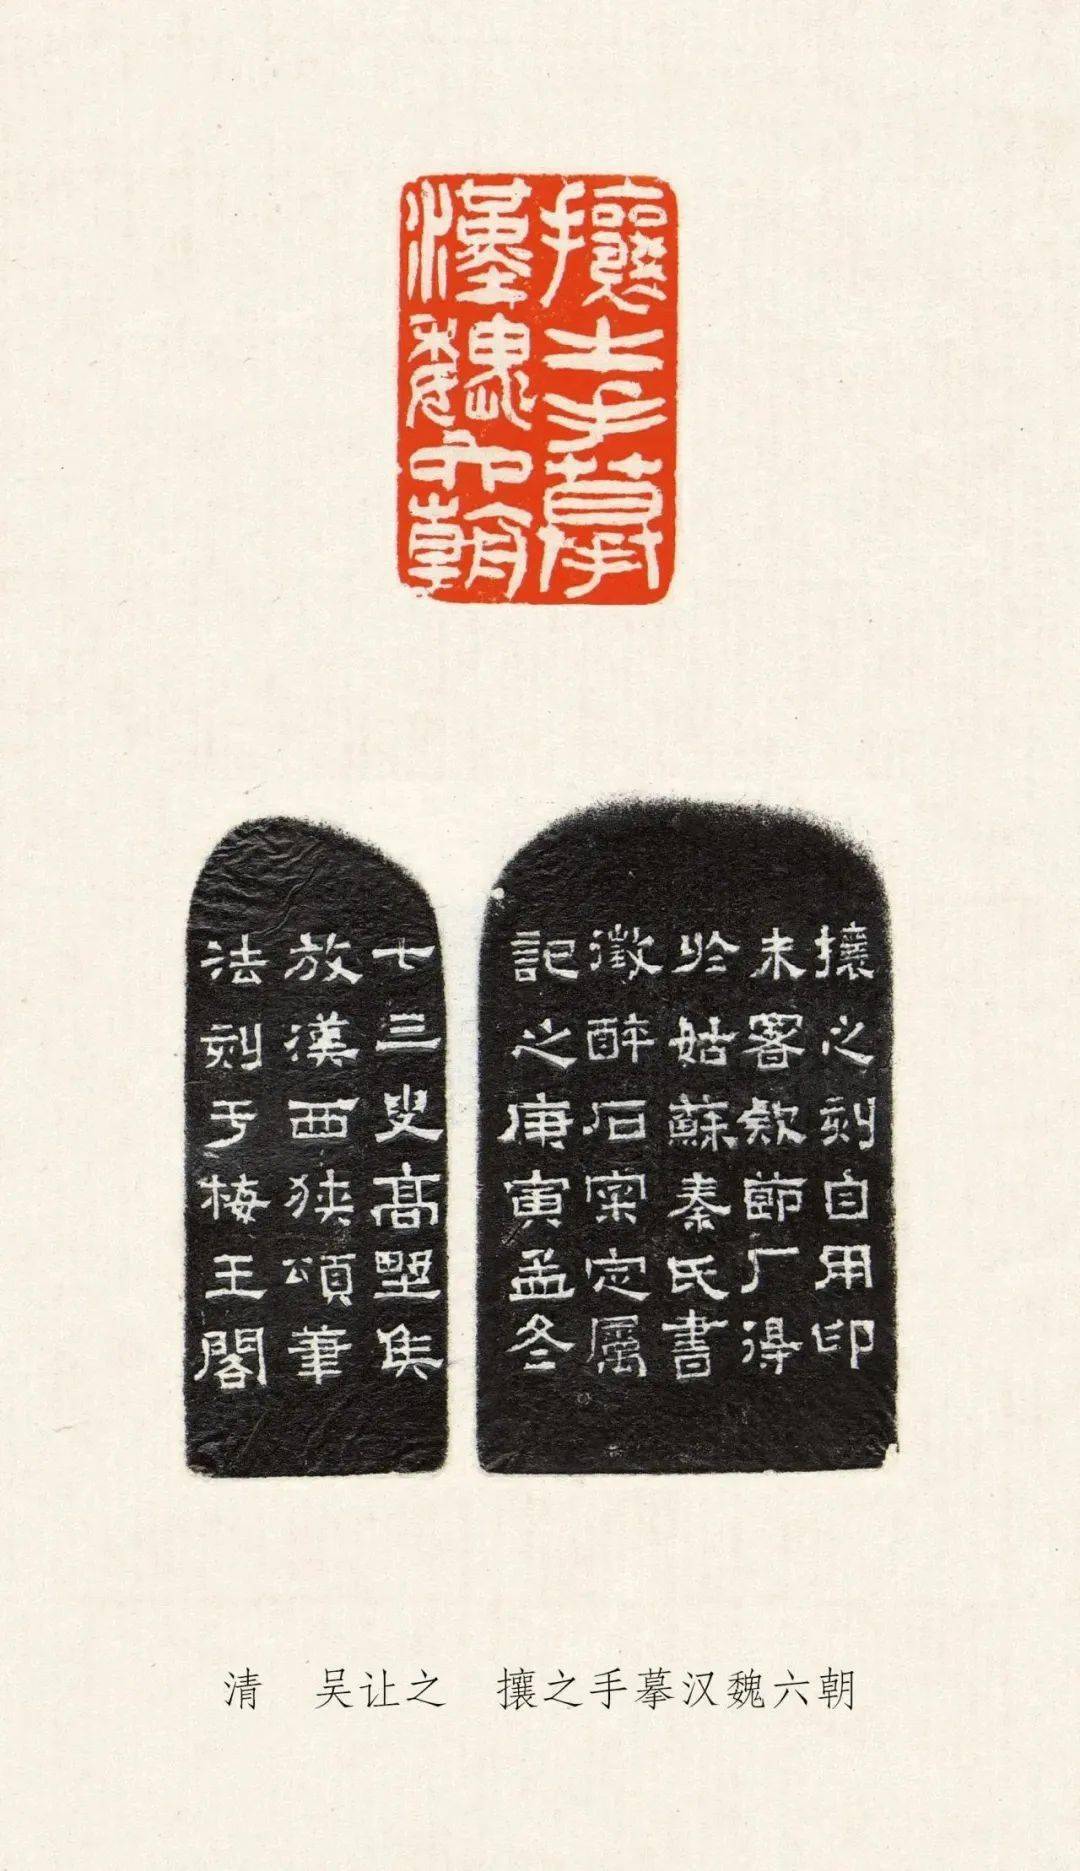 攘之手摹
漢魏六朝
攘之刻自用印
未署款節厂得
於姑蘇秦氏書
徵醉石宷定属
記之庚寅孟冬
七三叟高野侯
放漢西狹頌筆
法刻于梅王閣
清　吴让之　攘之手摹汉魏六朝